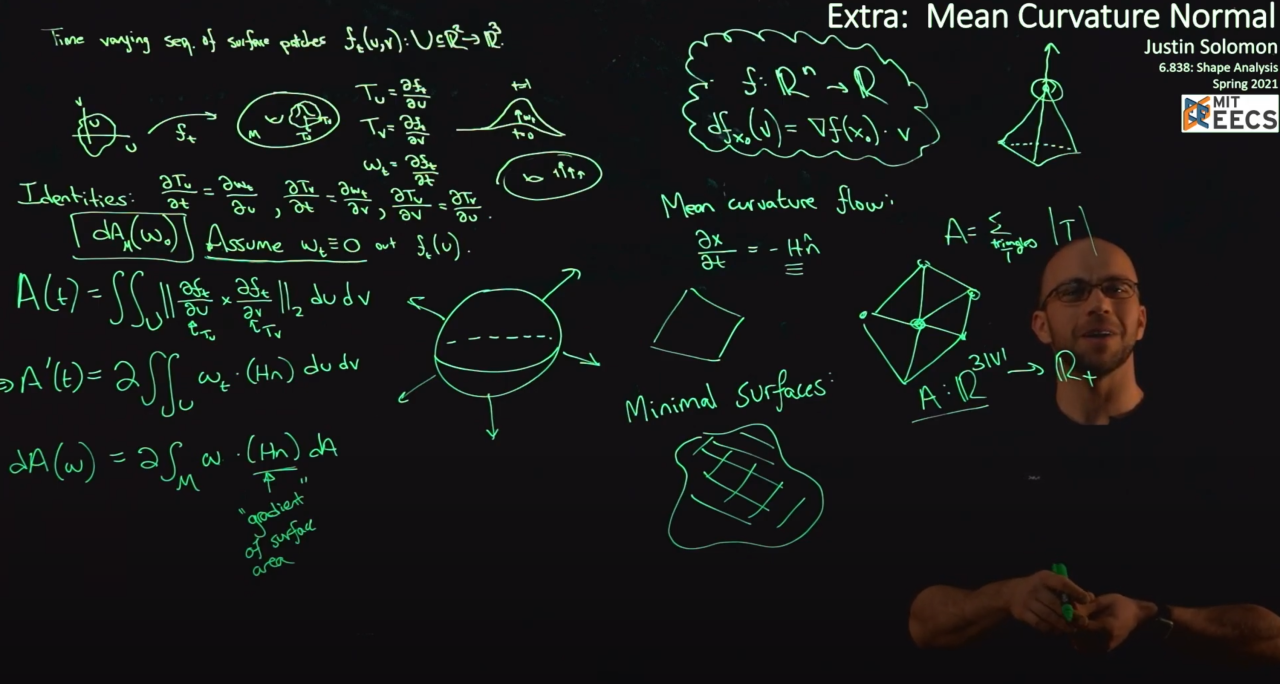 Extra: Mean Curvature Normal
Justin Solomon
6.838: Shape Analysis
Spring 2021
MIT
EECS
Time varying seq. of surface patches f_t(u,v): U⊆ℝ²→ℝ³.
v
U
u
f_t
M
T_v
T_u
T_u = ∂f_t/∂u
T_v = ∂f_t/∂v
w_t = ∂f_t/∂t
t=1
↑w_t
t=0
Identities: ∂T_u/∂t = ∂w_t/∂u, ∂T_v/∂t = ∂w_t/∂v, ∂T_u/∂v = ∂T_v/∂u.
dA_M(w_0) Assume w_t≡0 out f_t(U).
A(t) = ∬_U ||∂f_t/∂u × ∂f_t/∂v||_2 du dv
↑T_u ↑T_v
⇒ A'(t) = 2∬_U w_t · (Hn) du dv
dA(w) = 2∫_M w · (Hn) dA
↑
"gradient"
of surface
area
f: ℝⁿ → ℝ
df_{x_0}(v) = ∇f(x_0) · v
Mean curvature flow:
∂x/∂t = -Hn̂
Minimal surfaces:
A = Σ_{triangles T} |T|
A: ℝ^{3|V|} → ℝ_+